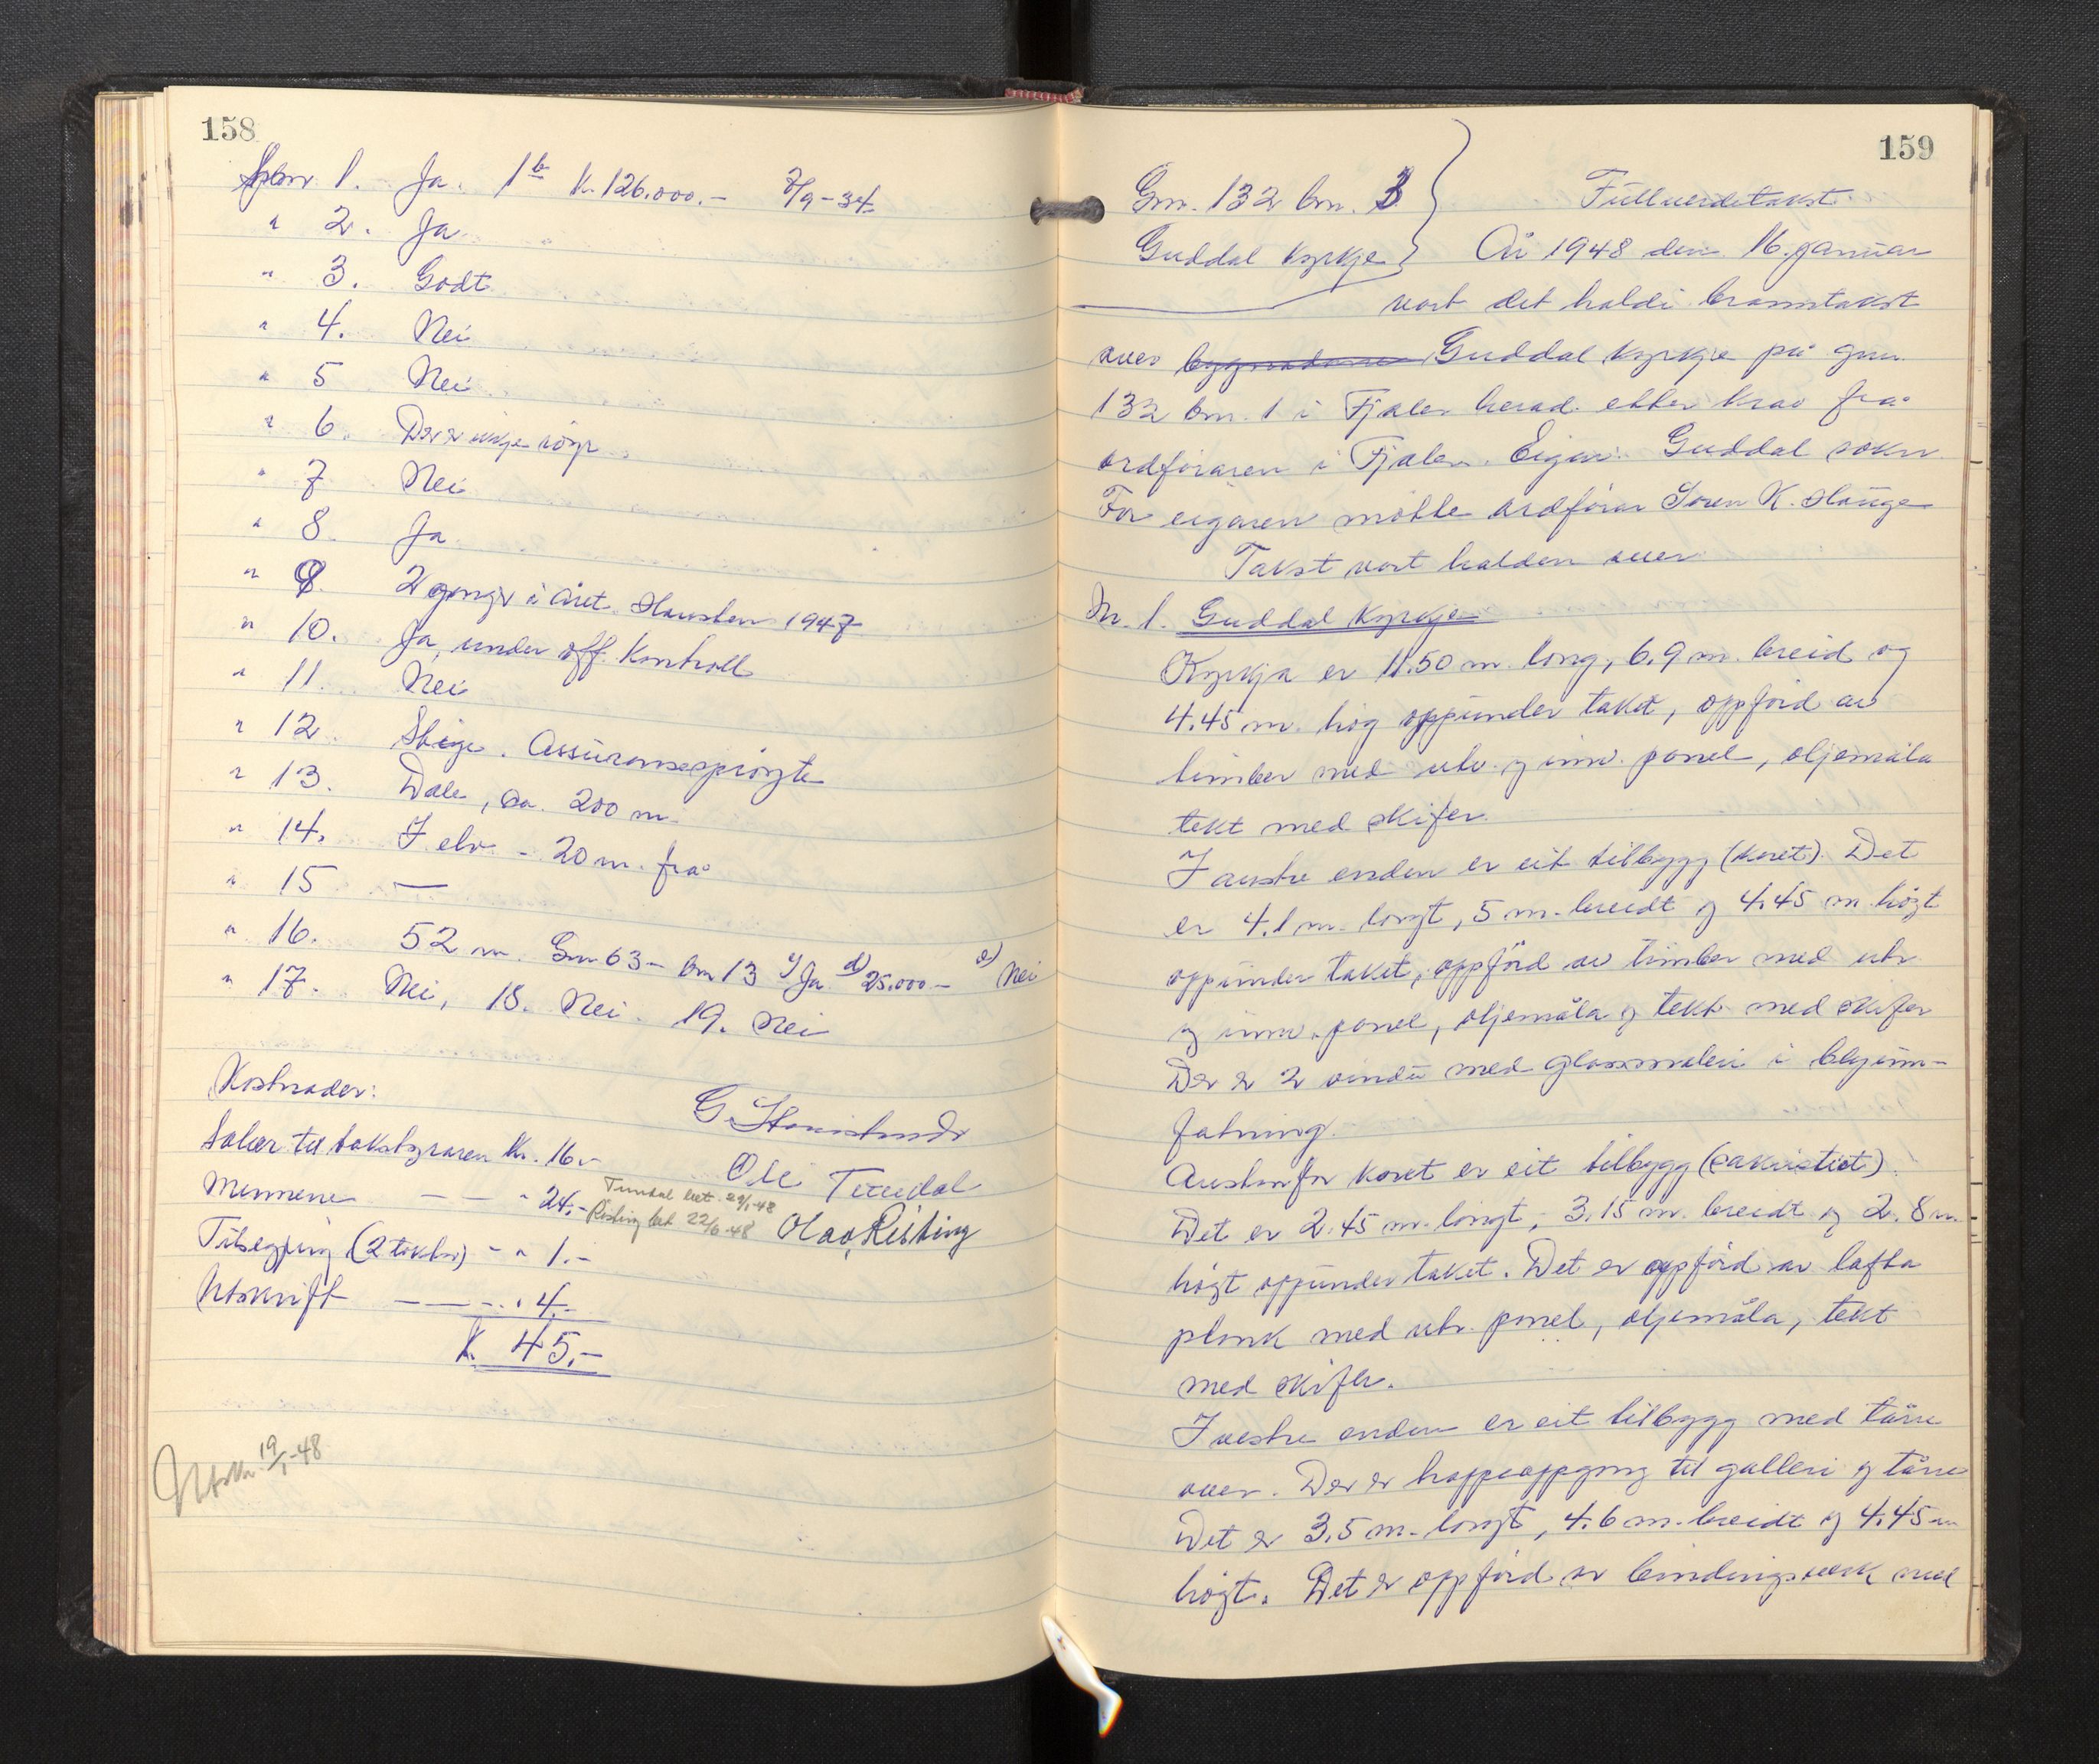 158
Spm 1. Ja. 1b K. 126.000.- 7/9-34.
" 2. Ja
" 3. Godt
" 4. Nei
" 5 Nei
" 6. Der er ikkje
" 7 Nei
" 8. Ja
" 9. 2 gonger i året. Hausten 1947
" 10. Ja, under off. Kontroll
" 11. Nei
" 12. Stige. Assuransesprøyte
" 13. Dale, ca. 200 m.
" 14. I elv - 20 m. frå
" 15 —
" 16. 52 m. Gnr 63 - bnr 13 c) Ja d) 25.000.- e) Nei
" 17. Nei, 18. Nei. 19. Nei
Kostnader:
Salær til takstyraren Kr. 16.-
Mennene — — " 24.-
Tilsegjing (2 takster) - " 1.-
Utskrift — — " 4.-
K. 45.-
Ole Tundal
Tundal bet. 29/1-48
Risting bet 22/6-48
Olav Risting
Utskr. 19/1-48
159
Gnr. 132 bnr. 3
Guddal kyrkje
Fullverditakst
År 1948 den 16. januar
vart det haldi branntakst
over bygnadane Guddal kyrkje på gnr.
132 bnr. 1 i Fjaler herad etter krav frå
ordføraren i Fjaler. Eigar: Guddal sokn
For eigaren møtte ordførar Søren K. Hauge
Takst vart halden over
Nr. 1. Guddal kyrkje
Kyrkja er 11.50 m. long, 6.9 m. breid og
4.45 m. høg oppunder taket, oppførd av
timber med utv. og innv. panel, oljemåla
tekt med skifer.
I austre enden er eit tilbygg (koret). Det
er 4.1 m. longt, 5 m. breidt og 4.45 m høgt
oppunder taket, oppførd av timber med utv.
og innv. panel, oljemåla og tekt med skifer
Der er 2 vindu med glassmaleri i blyinn-
fatning.
Austanfor koret er eit tilbygg (sakristiet).
Det er 2.45 m. longt, 3.15 m. breidt og 2.8 m.
høgt oppunder taket. Det er oppførd av lafta
plank med utv. panel, oljemåla, tekt
med skifer.
I vestre enden er eit tilbygg med tårn
over. Der er trappeoppgong til galleri og tårn
Det er 3.5 m. longt, 4.6 m. breidt og 4.45 m
høgt. Det er oppførd av bindingsverk med